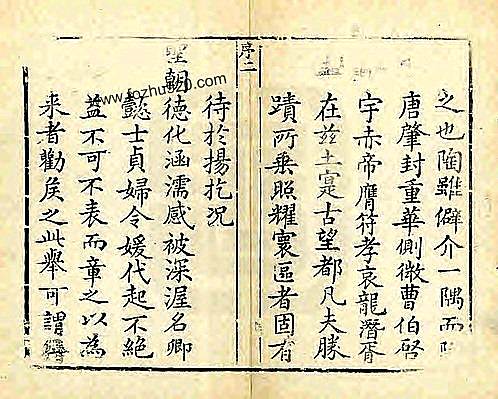 之也陶雖僻介一隅而
唐肇封重華側微曹伯啓
宇赤帝膺符孝哀龍潛胥
在茲土寔古望都凡夫勝
蹟所乗照耀寰區者固有
序二
待於揚扢況
聖朝德化涵濡感被深渥名卿
懿士貞婦令媛代起不絕
益不可不表而章之以為
來者勸矦之此舉可謂
www.fozhu920.com